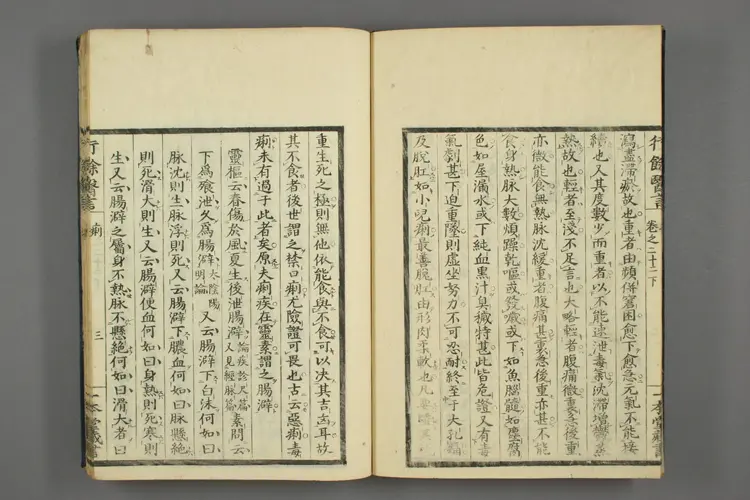 瀉盡滯瘀故也重者由頻併窘困愈下愈急元氣不能接
續也又其度數少而重者以不能速泄毒氣沈滯增
熱故也輕者至淺不足言也大略輕者腹痛微裏急後重
亦微能食無熱脉沈緩重者腹痛甚裏急後重亦甚不能
食身熱脉大數煩躁乾嘔或發噦或下如魚腦髓如塵腐
色如屋漏水或下純血黑汁臭穢特甚此皆危證又有毒
氣劇甚下迫重墜則虛坐努力不可忍耐終至于大孔
及脫肛如小兒痢最善脫肛由形肉柔軟也凡
行餘醫言 卷之二十二下
一本堂藏書
重生死之極則無他依能食與不食可以決其吉凶耳故
其不食者後世謂之禁口痢尤險證可畏也古云惡痢毒
痢未有過于此者矣原夫痢疾在靈素謂之腸澼
靈樞云春傷於風夏生後泄腸澼論疾診尺篇又見經脉篇素問云
下爲飱泄久爲腸澼太陰陽明論又云腸澼下白沫何如曰
脉沈則生脉浮則死又云腸澼下膿血何如曰脉懸絕
則死滑大則生又云腸澼便血何如曰身熱則死寒則
生又云腸澼之屬身不熱脉不懸絕何如曰滑大者曰
行餘醫言 痢 三
一本堂藏書